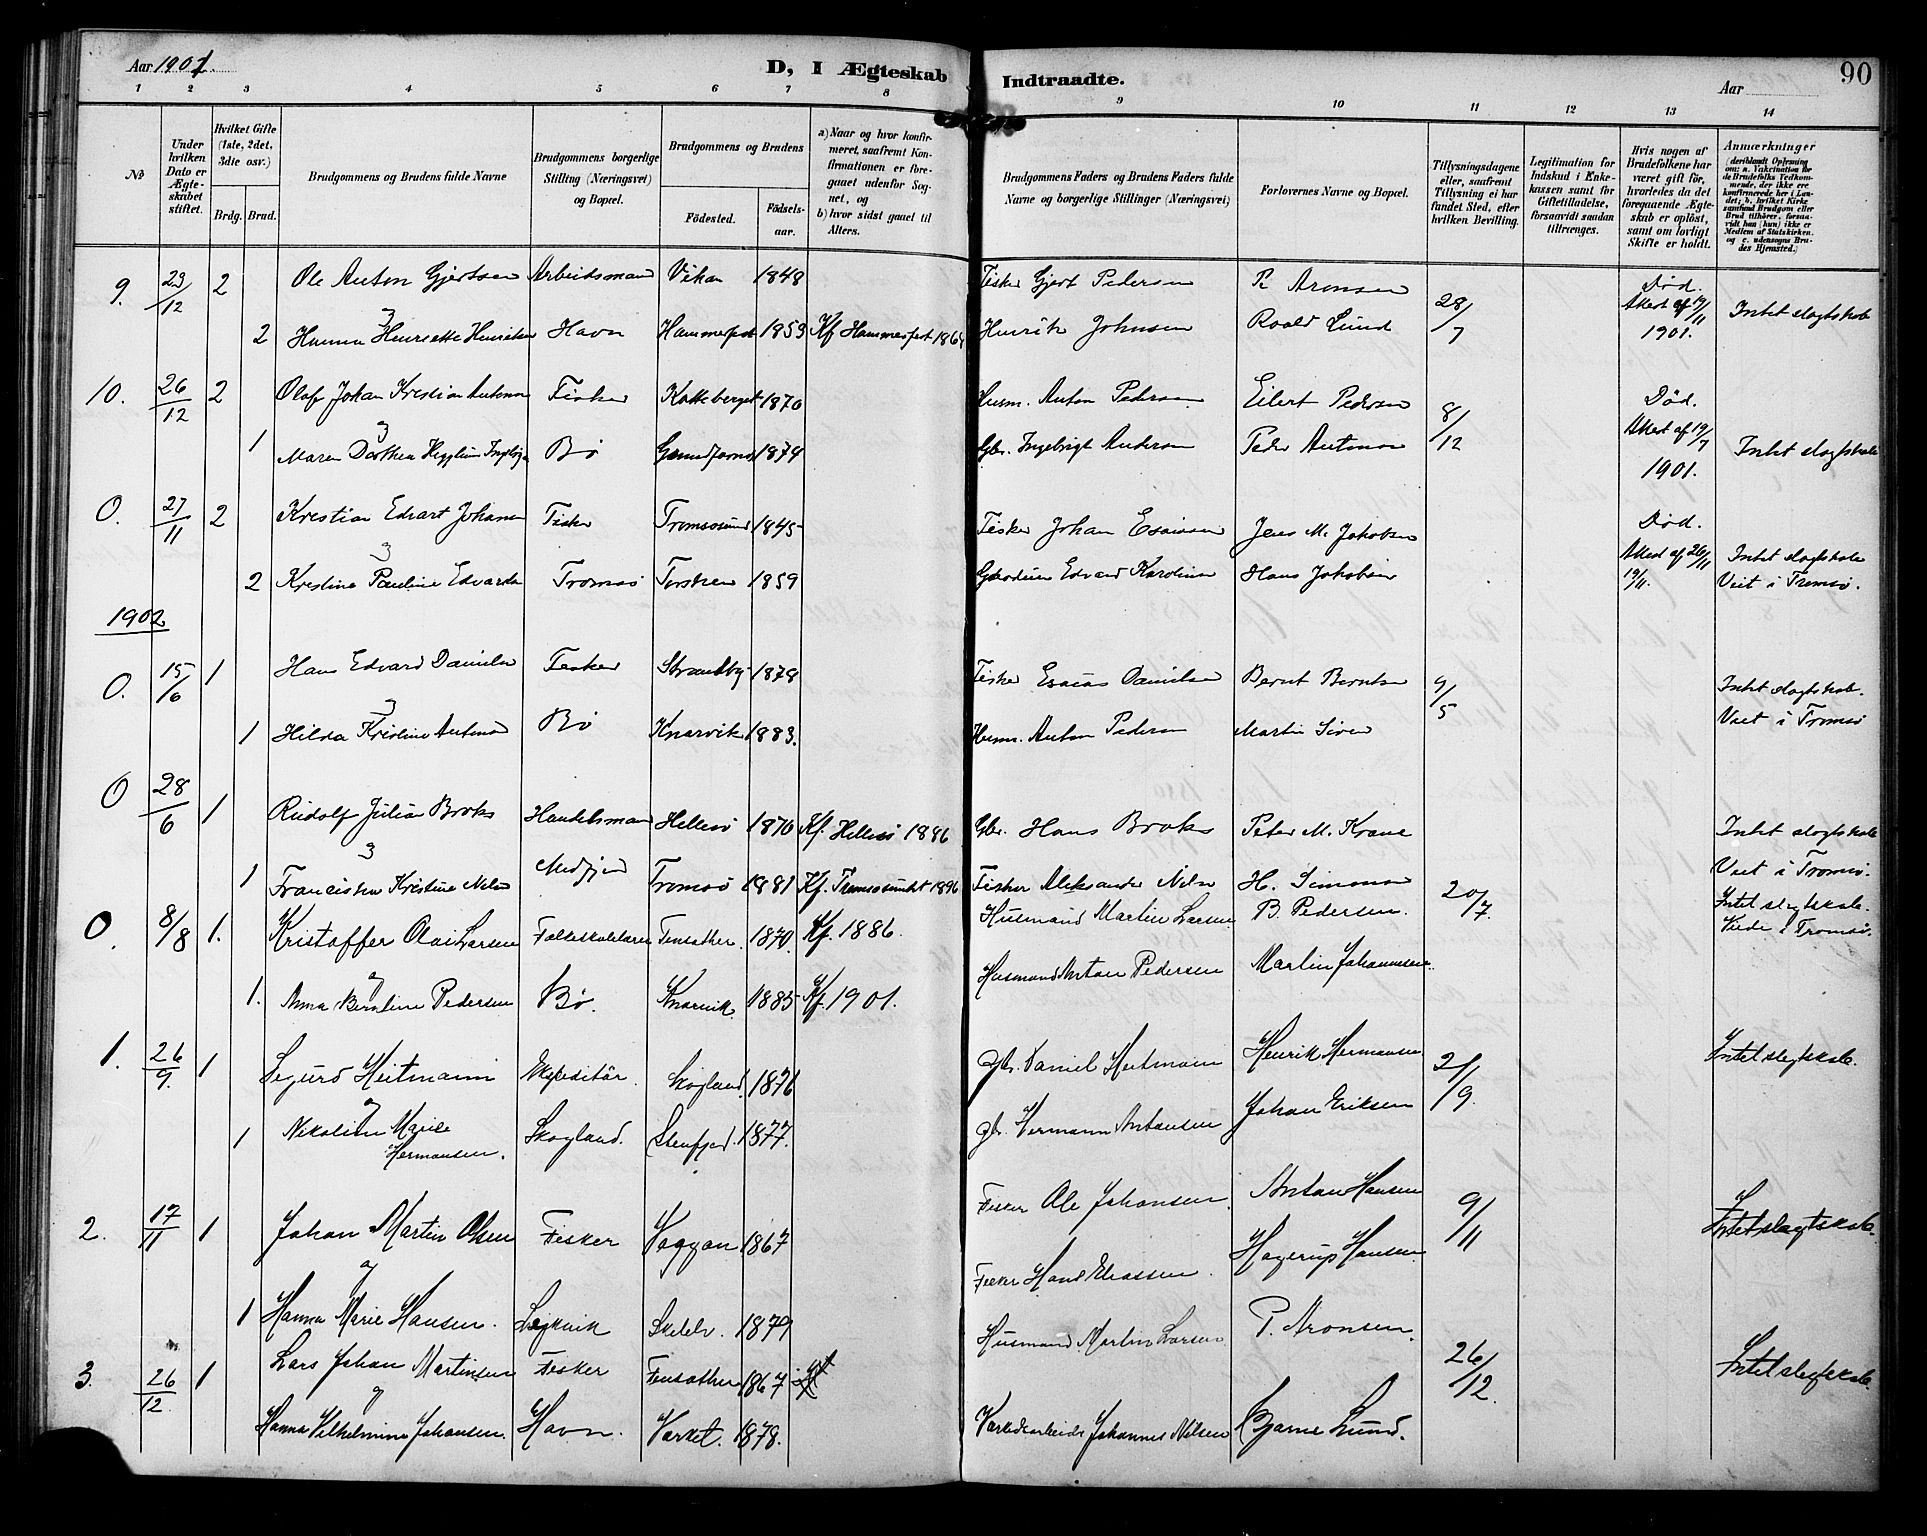 Aar 1901.
D, I Ægteskab
Indtraadte.
Aar
90
1 2 3 4 5 6 7 8 9 10 11 12 13 14
No
Under hvilken Dato er Ægteskabet stiftet.
Hvilket Gifte (1ste, 2det, 3die osv.)
Brdg. Brud.
Brudgommens og Brudens fulde Navne
Brudgommens borgerlige Stilling (Næringsvei) og Bopæl.
Brudgommens og Brudens
Fødested.
Fødselsaar.
a) Naar og hvor konfirmeret, saafremt Konfirmationen er foregaaet udenfor Sognet, og
b) hvor sidst gaaet til Alters.
Brudgommens Faders og Brudens Faders fulde Navne og borgerlige Stillinger (Næringsvei)
Forlovernes Navne og Bopæl.
Tillysningsdagene eller, saafremt Tillysning ei har fundet Sted, efter hvilken Bevilling.
Legitimation for Indskud i Enkekassen samt for Giftetilladelse, forsaavidt saadan tiltrænges.
Hvis nogen af Brudefolkene har været gift før, hvorledes da det foregaaende Ægteskab er opløst, samt om lovligt Skifte er holdt.
Anmærkninger
(deriblandt Oplysning om: a. Vakcination for de Brudefolks Vedkommende, der ikke ere konfirmerede her i Landet; b. hvilket Kirkesamfund Brudgom eller Brud tilhører, forsaavidt han (hun) ikke er Medlem af Statskirken, og c. udensogns Brudes Hjemsted.)
9. 23/12 2 Ole Anton Gjertsen Arbeidsmand Vikan 1848 Fisker Gjert Pedersen P. Aronsen 28/7 Død. Attest af 19/11 1901. Intet slægtskab
2 Hanna Henriette Henriksen Havn Hammerfest 1853 Kf Hammerfest Henrik Johnsen Roald Lund
10. 26/12 2 Olaf Johan Kristian Antonsen Fisker Katteberget 1870 Husm. Anton Pedersen Eilert Pedersen 8/12 Død. Attest af 19/7 1901. Intet slægtskab
1 Maren Dorthea Bø 1874 Gbr. Ingebrigt Andersen Peder Antonsen
0. 27/11 2 Kristian Edvart Johansen Fisker Tromsøsund 1845 Fisker Johan Esaiasen Jens M. Jakobsen Død. Attest af 26/11 19/11. Intet slægtskab
2 Kristine Pauline Edvardsen Tromsø Torsken 1859 Edvard Karolius Hans Jakobsen Viet i Tromsø.
1902
0. 15/6 1 Hans Edvard Danielsen Fisker Strandby 1878 Fisker Esaias Danielsen Bernt Berntsen 9/5 Intet slægtskab.
1 Hilda Kristine Antonsen Bø Knarvik 1883. Husm. Anton Pedersen Martin Viet i Tromsø
0 28/6 1 Rudolf Julian Broks Handelsmand Hellesø 1870 Kf. Hellesø 1886 Gbr. Hans Broks Peter M. Krane Intet slægtskab
1 Francisca Kristine Nilsen Medfjord Tromsø 1881 Kf. Tromsøsundet 1896 Fisker Aleksander Nilsen H. Simonsen Viet i Tromsø.
0. 8/8 1. Kristoffer Olai Larsen Folkeskolelærer Finsæther. 1870. Kf. 1886. Husmand Martin Larsen B. Pedersen. 20/7. Intet slegtskab. Viede i Tromsø.
1. Anna Berntine Pedersen Bø. Knarvik. 1885 Kf. 1901. Husmand Anton Pedersen Martin Johannesen.
1. 26/9. 1 Sigurd Heitmann Expeditør. Skogland. 1876 gbr. Daniel Heitmann Henrik Hermansen 21/9. Intet slegtskab.
1 Nikoline Marie Hermansen. Skogland. Stenfjord. 1877. gbr. Hermann Antonsen Johan Eriksen
2. 17/11 1 Johan Martin Olsen Fisker Vaggan 1867 Fisker Ole Johansen. Anton Hansen 9/11 Intet slægtskab.
og
1 Hanna Marie Hansen. Leikvik Skelelv. 1879 Fisker Hans Eliassen. Hagerup Hansen.
3. 26/12. 1 Lars Johan Martinsen Fisker Finsæther 1867 Husmand Martin Larsen P. Aronsen. 26/12. Intet slegtskab.
Hanna Vilhelmine Johansen. Havn. Værket. 1878. Værksarbeider Johannes Nilsen Bjarne Lund.